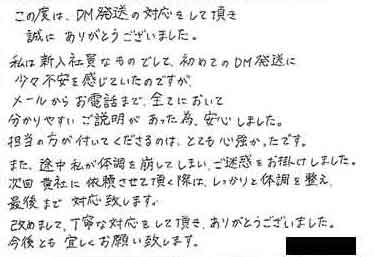 この度は、DM発送の対応をして頂き
誠にありがとうございました。
私は新入社員なものでして、初めてのDM発送に
少々不安を感じていたのですが、
メールからお電話まで、全てにおいて
分かりやすいご説明があった為、安心しました。
担当の方が付いてくださるのは、とても心強かったです。
また、途中私が体調を崩してしまい、ご迷惑をお掛けしました。
次回貴社に依頼させて頂く際は、しっかりと体調を整え、
最後まで対応致します。
改めまして、丁寧な対応をして頂き、ありがとうございました。
今後とも宜しくお願い致します。